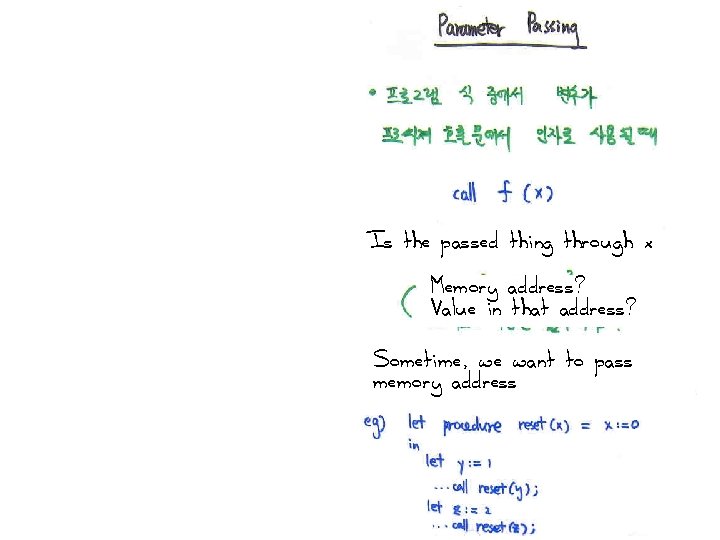 Parameter Passing
• 프로그램 식 중에서 변수가
프로시져 호출문에서 인자로 사용될 때
call f (x)
Is the passed thing through x
Memory address?
Value in that address?
Sometime, we want to pass
memory address
eg) let procedure reset(x) = x:=0
in
let y:=1
...call reset(y);
let z:=2
...call reset(z);